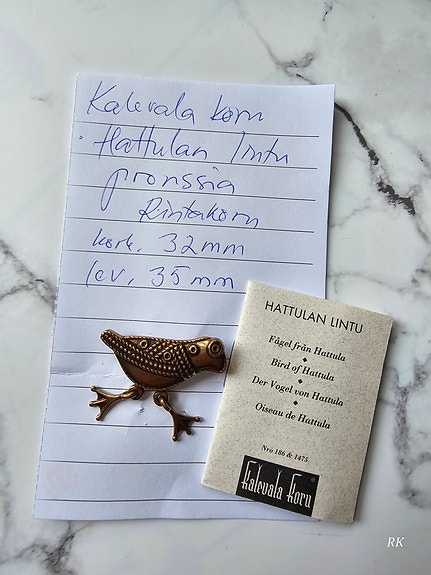 Kalevala koru
· Hattulan lintu
pronssia
Rintakoru
kork. 32mm
lev. 35mm
HATTULAN LINTU
Fågel från Hattula
◆
Bird of Hattula
◆
Der Vogel von Hattula
◆
Oiseau de Hattula
Nro 186 & 1475
Kalevala Koru
RK